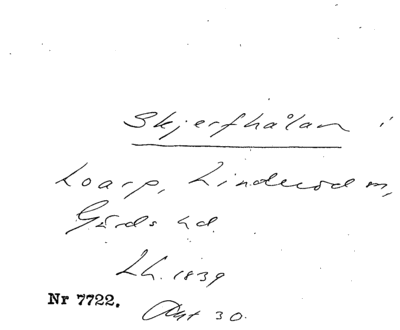 Skjerfhålan i
Loarp, Linderöd sn,
Gärds hd.
Lh. 1839
Nr 7722.
Akt 30.